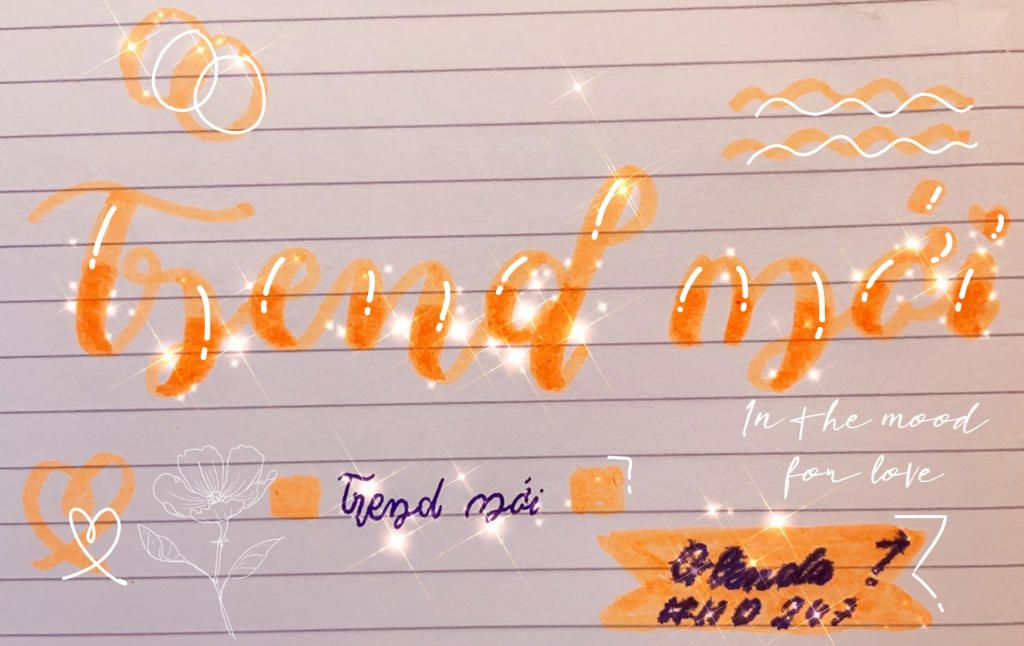 Trend mới
In the mood
for love
Trend mới
#HD 247